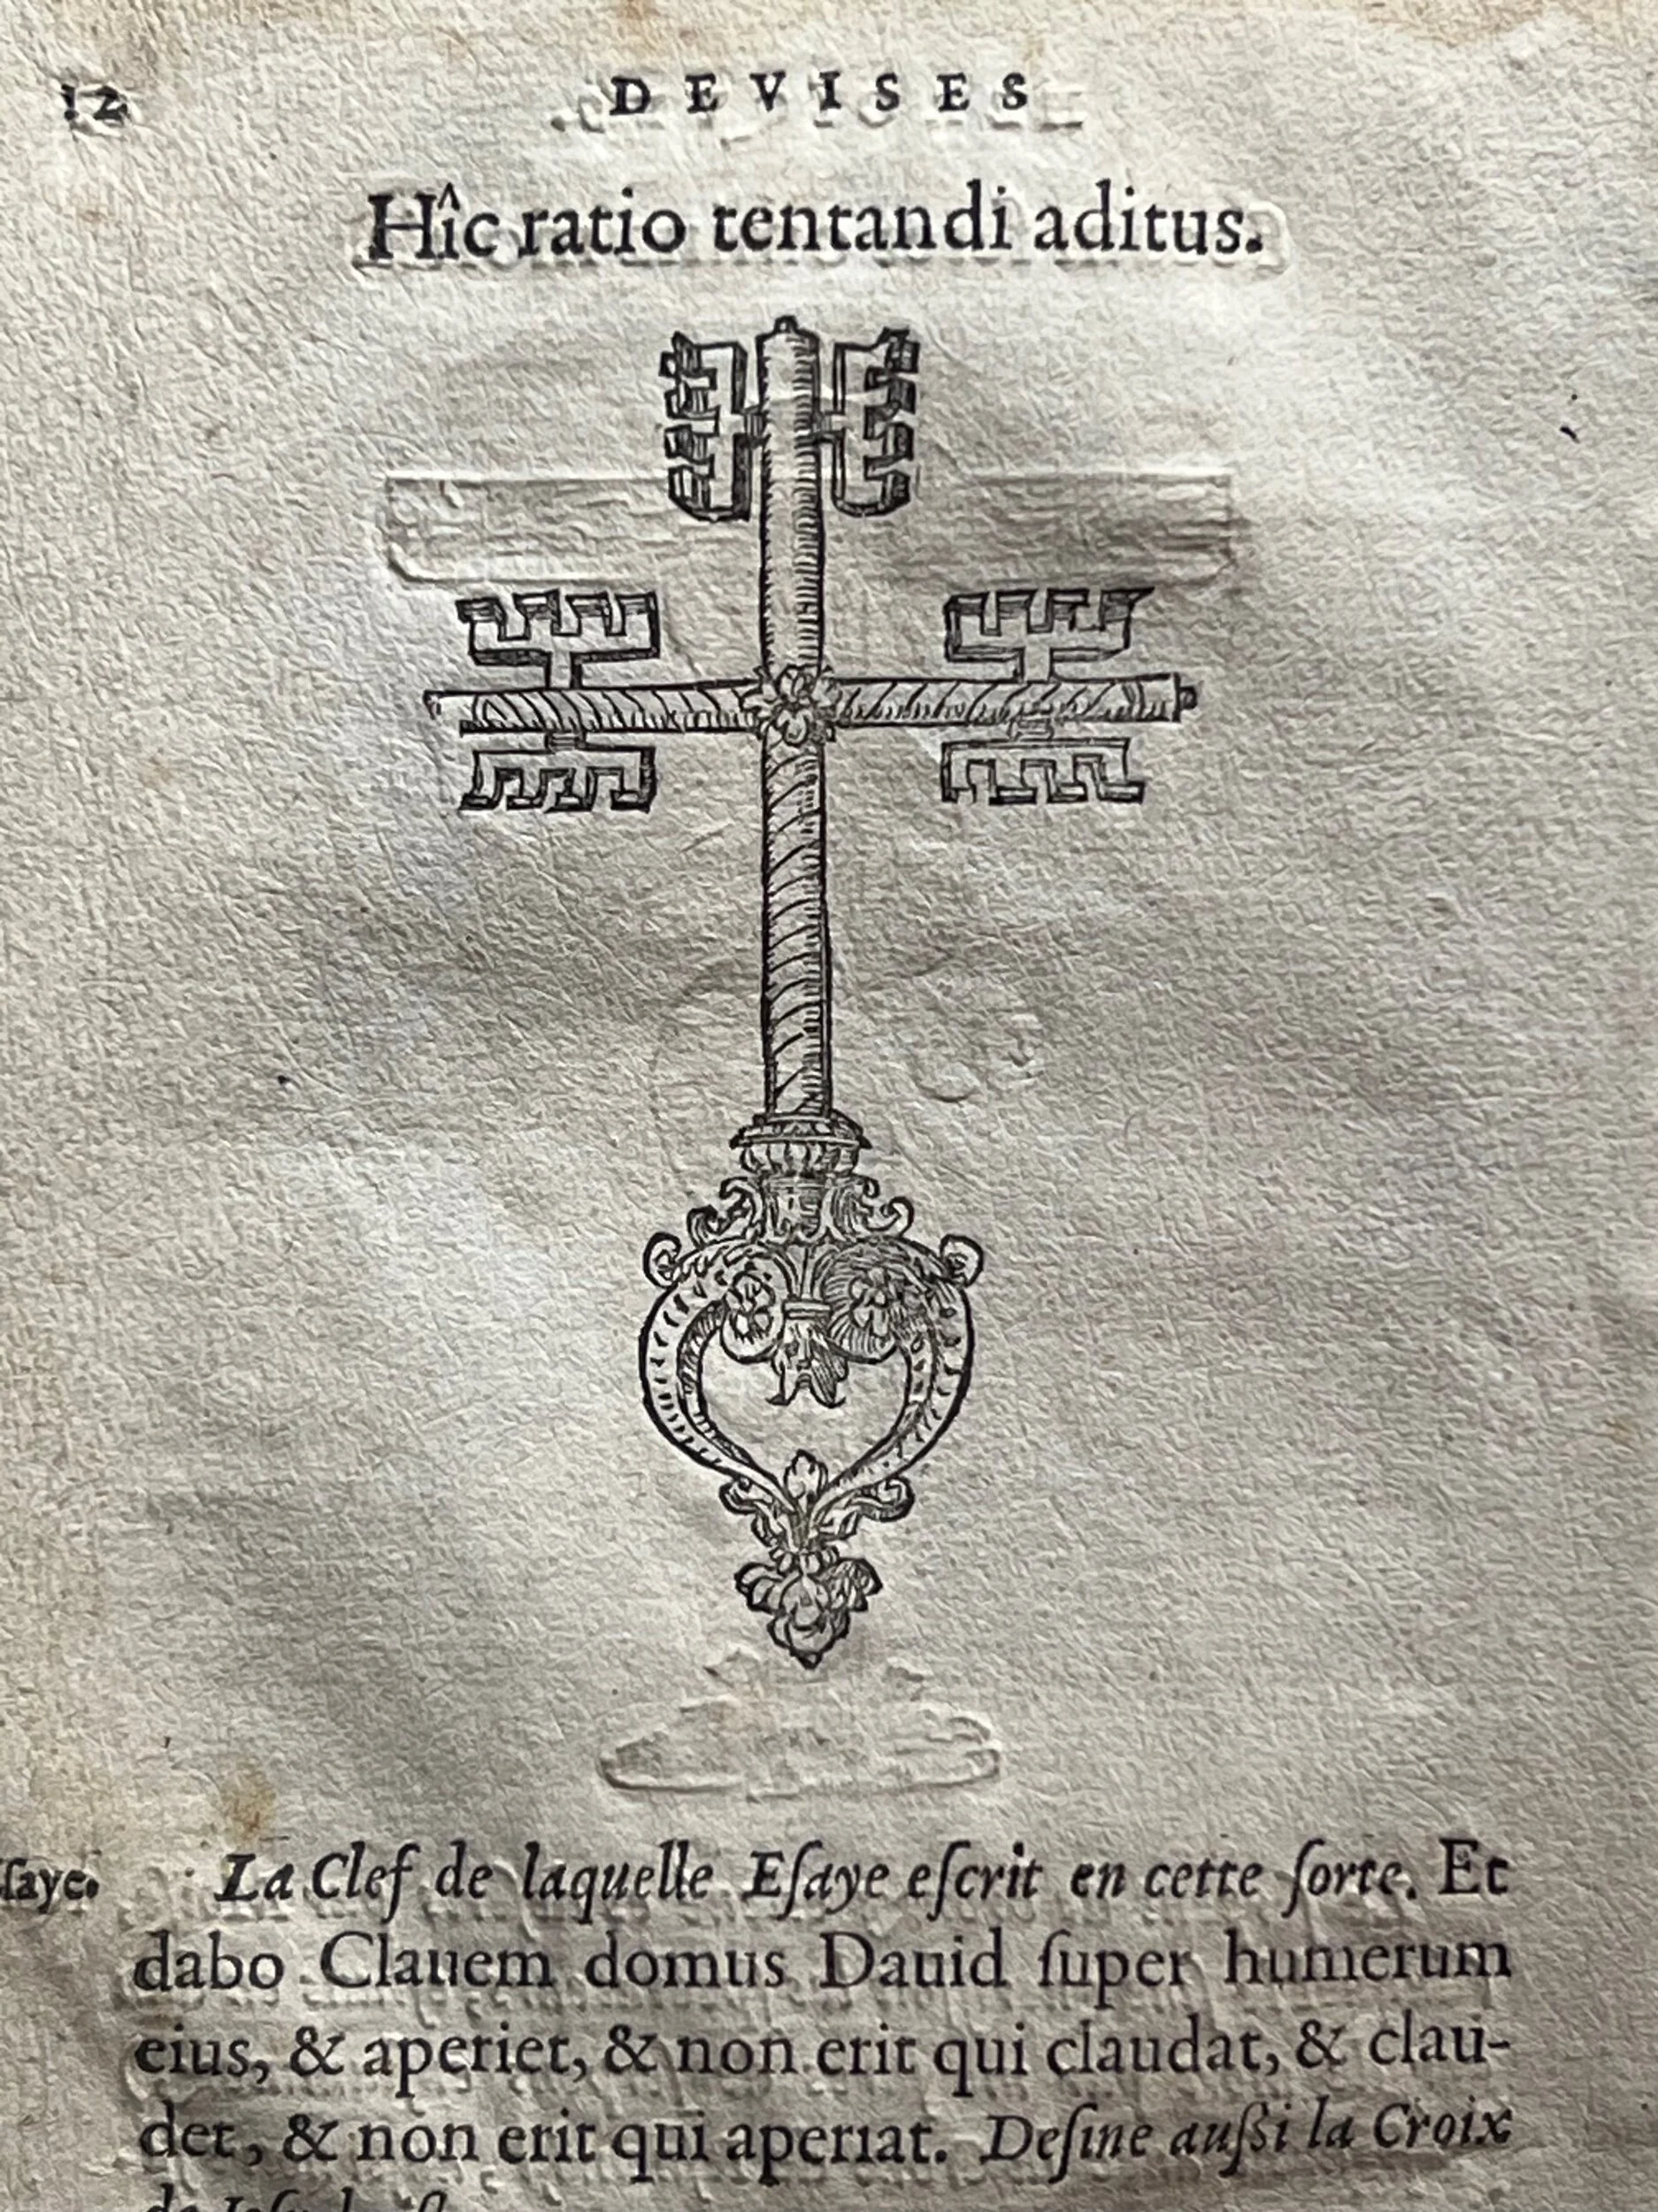 12
DEVISES
Hîc ratio tentandi aditus.
La Clef de laquelle Eſaye eſcrit en cette ſorte. Et
dabo Clauem domus Dauid ſuper humerum
eius, & aperiet, & non erit qui claudat, & clau-
det, & non erit qui aperiat. Deſine auſsi la Croix